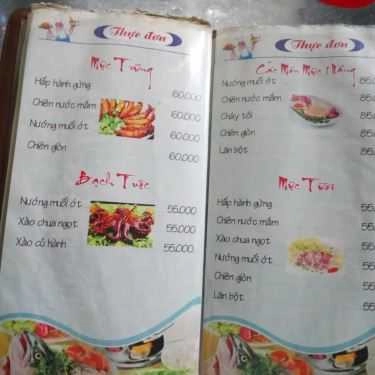 Thực đơn
Mực Trứng
Hấp hành gừng 60.000
Chiên nước mắm 60.000
Nướng muối ớt 60.000
Chiên giòn 60.000
Bạch Tuộc
Nướng muối ớt 55.000
Xào chua ngọt 55.000
Xào củ hành 55.000
Thực đơn
Các Món Mực 1 Nắng
Nướng muối ớt 85
Chiên nước mắm 85
Cháy tỏi 85
Chiên giòn 85
Lăn bột 85
Mực Tươi
Hấp hành gừng 55
Chiên nước mắm 55
Xào chua ngọt 55
Nướng muối ớt 55
Chiên giòn 55
Lăn bột 55